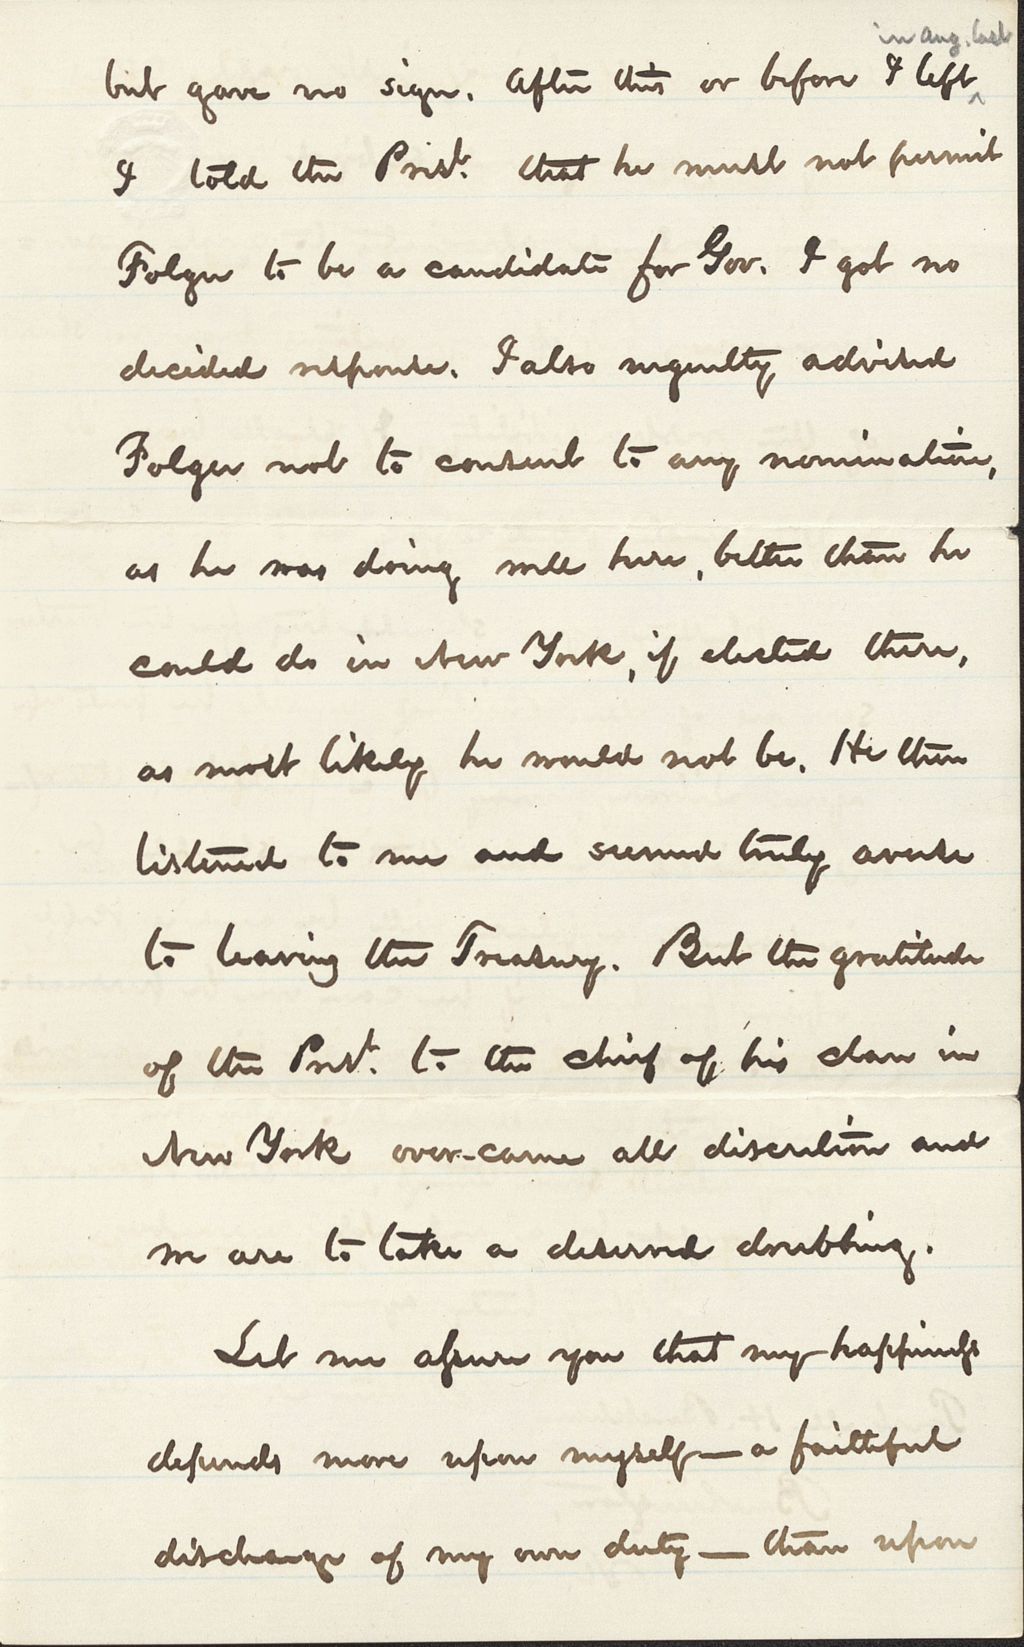 in Aug. last
but gave no sign. After this or before I left ^
I told the Prest. that he must not permit
Folger to be a candidate for Gov. I got no
decided response. I also urgently advised
Folger not to consent to any nomination,
as he was doing well here, better than he
could do in New York, if elected there,
as most likely he would not be. He then
listened to me and seemed truly averse
to leaving the Treasury. But the gratitude
of the Prest. to the chief of his clan in
New York over-came all discretion and
we are to take a deserved drubbing.
Let me assure you that my happiness
depends more upon myself — a faithful
discharge of my own duty — than upon